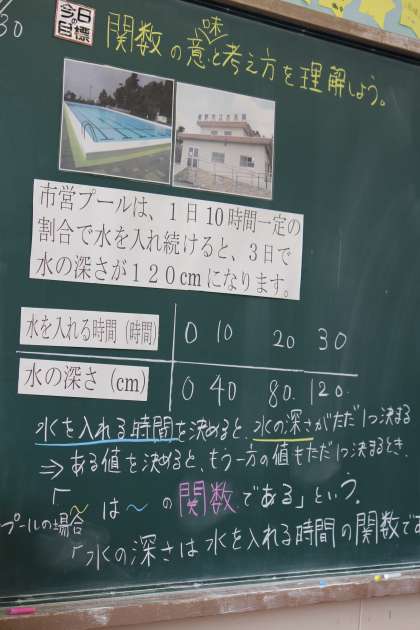 30
今日の目標
関数の意味と考え方を理解しよう。
市営プールは、1日10時間一定の
割合で水を入れ続けると、3日で
水の深さが120cmになります。
水を入れる時間（時間） 0 10 20 30
水の深さ（cm） 0 40 80 120
水を入れる時間を決めると、水の深さがただ1つ決まる
⇒ ある値を決めると、もう一方の値もただ1つ決まるとき、
「〜は〜の関数である」という。
プールの場合
「水の深さは水を入れる時間の関数で